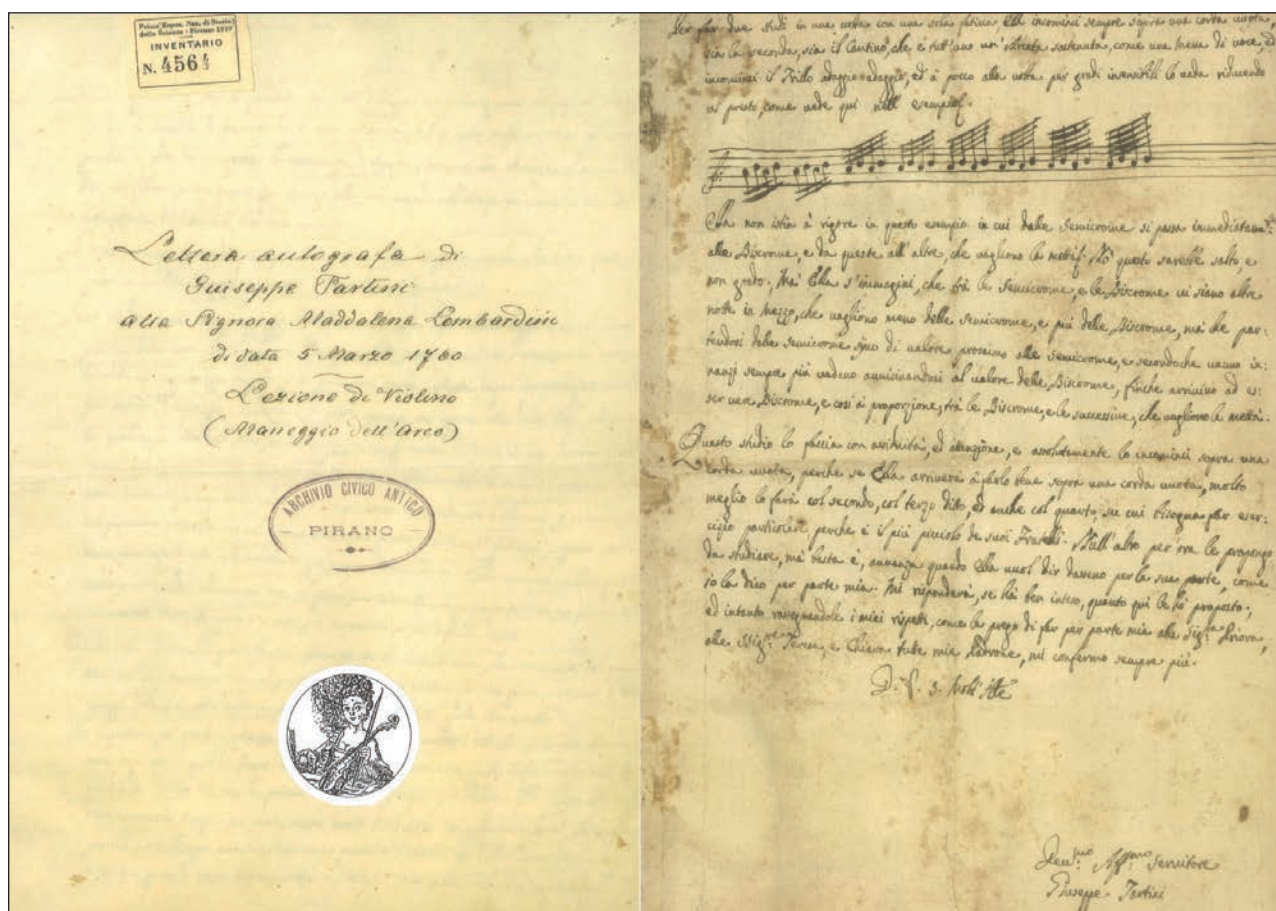 Prima Espos. Naz. di Storia
della Scienza - Firenze 1929
INVENTARIO
N. 4564
Lettera autografa di
Guiseppe Tartini
alla Signora Maddalena Lombardini
di data 5 Marzo 1760
Lezione di Violino
(Maneggio dell'Arco)
ARCHIVIO CIVICO ANTICO
PIRANO
Per far due studi in una volta con una sola fatica Ella incominci sempre sopra una corda vuota,
sia la seconda, sia il Cantino, che è tutt'uno un' arcata sostenuta, come una messa di voce, ed
incominci il Trillo adaggio adaggio, ed à pocco alla volta per gradi insensibili lo vada riducendo
al presto, come vede qui nell' esempio.
Ella non istia à rigore in questo esempio in cui dalle Semicrome si passa immediatam:
alle Biscrome, e da queste all' altre, che vagliono la mettà. Nò questo sarebbe salto, e
non grado. Mà Ella s'immagini, che frà le Semicrome, e le Biscrome vi siano altre
notte in mezzo, che vagliono meno delle semicrome, e più delle Biscrome, mà che par-
tendosi dalle semicrome sijno di valore prossimo alle semicrome, e secondoche vanno in:
nanzi sempre più vadino avvicinandosi al valore delle Biscrome, finche arrivino ad es:
ser vere Biscrome, e così à proporzione, frà le Biscrome, e le successive, che vagliono la mettà.
Questo studio lo faccia con assiduità, ed attenzione, e assolutamente lo incominci sopra una
corda vuota, perche se Ella arriverà à farlo bene sopra una corda vuota, molto
meglio lo farà col secondo, col terzo dito, ed anche col quarto, su cui bisogna far eser-
cizio particolare, perche è il più picciolo de suoi Fratelli. Null'altro per ora le propongo
da studiare, mà basta è, avvanza quando Ella vuol dir dasseno per la sua parte, come
io la dico per parte mia. Mi risponderà, se hà ben inteso, quanto qui le hò proposto;
ed intanto rassegnandole i miei rispetti, come la prego di far per parte mia alla Sig:ra Priora,
alle Sig:re Teresa, e Chiara tutte mie Padrone, mi confermo sempre più.
D. V. S. Molt' Ill:
Dev:mo Aff:mo Servitore
Giuseppe Tartini